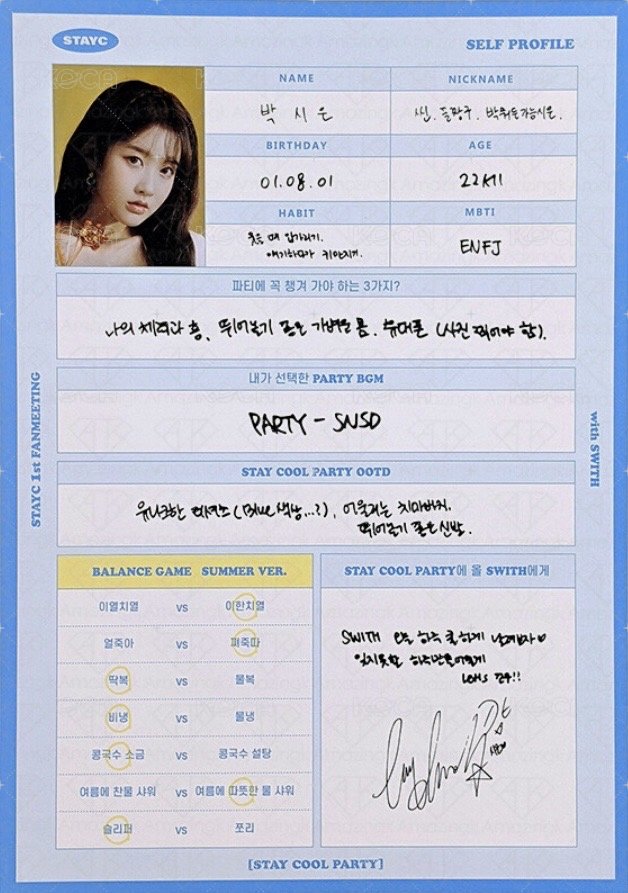 STAYC
SELF PROFILE
NAME
박 시 은
NICKNAME
씬. 돌랑구. 박뭐든가능시은.
BIRTHDAY
01.08.01
AGE
22살
HABIT
웃을 때 입가리기.
얘기하다가 귀만지기.
MBTI
ENFJ
파티에 꼭 챙겨 가야 하는 3가지?
나의 체력과 흥, 뛰어놀기 좋은 가벼운 몸, 휴대폰 (사진 찍어야 함).
내가 선택한 PARTY BGM
PARTY - SNSD
STAY COOL PARTY OOTD
유니크한 (Blue 색상...?), 어울리는 치마바지.
뛰어놀기 좋은 신발.
STAYC 1st FANMEETING
with SWITH
BALANCE GAME SUMMER VER.
이열치열 vs 이한치열
얼죽아 vs 쪄죽따
딱복 vs 물복
비냉 vs 물냉
콩국수 소금 vs 콩국수 설탕
여름에 찬물 샤워 vs 여름에 따뜻한 물 샤워
슬리퍼 vs 쪼리
STAY COOL PARTY에 올 SWITH에게
SWITH 오늘 하루 쿨하게 날려보자♡
잊지못할 하루 만들어줄게
Let's 고우!!
[STAY COOL PARTY]